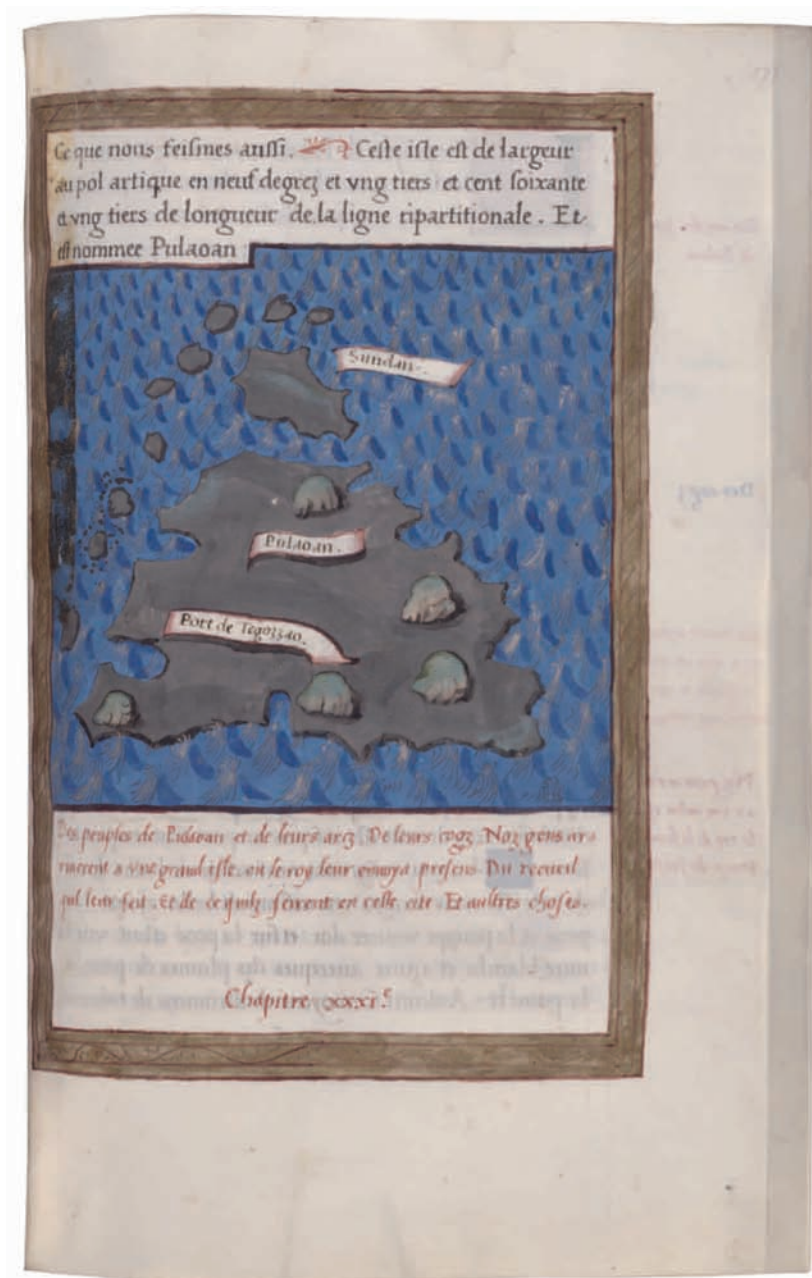 Ce que nous feismes aussi. Ceste isle est de largeur
au pol artique en neuf degrez et vng tiers et cent soixante
et vng tiers de longueur de la ligne ripartitionale. Et
est nommee Pulaoan
Sundan.
Pulaoan.
Port de Tegozzao.
Des peuples de Pulaoan et de leurs arcz De leurs cogz Noz gens ar-
riuerent a vne grand isle. ou le roy leur enuoya presens Du recueil
quil leur feit. Et de ce quilz feirent en celle cite Et aultres choses.
Chapitre xxxi.e